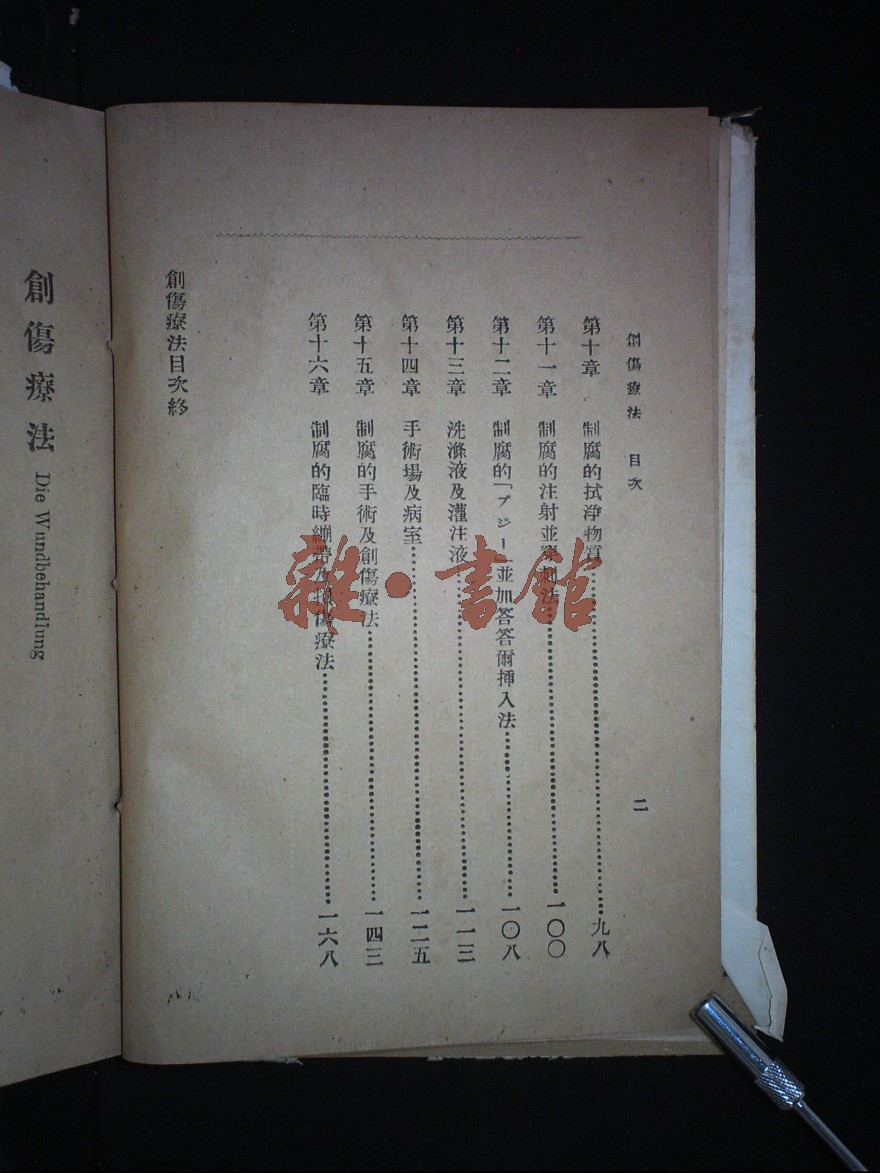 創傷療法 目次
二
第十章 制腐的拭淨物質……九八
第十一章 制腐的注射並穿刺法……一〇〇
第十二章 制腐的「ブジー」並加答答爾揷入法……一〇八
第十三章 洗滌液及灌注液……一一三
第十四章 手術場及病室……一二五
第十五章 制腐的手術及創傷療法……一四三
第十六章 制腐的臨時繃帶及損傷療法……一六八
創傷療法目次終
創傷療法 Die Wundbehandlung
雜·書館